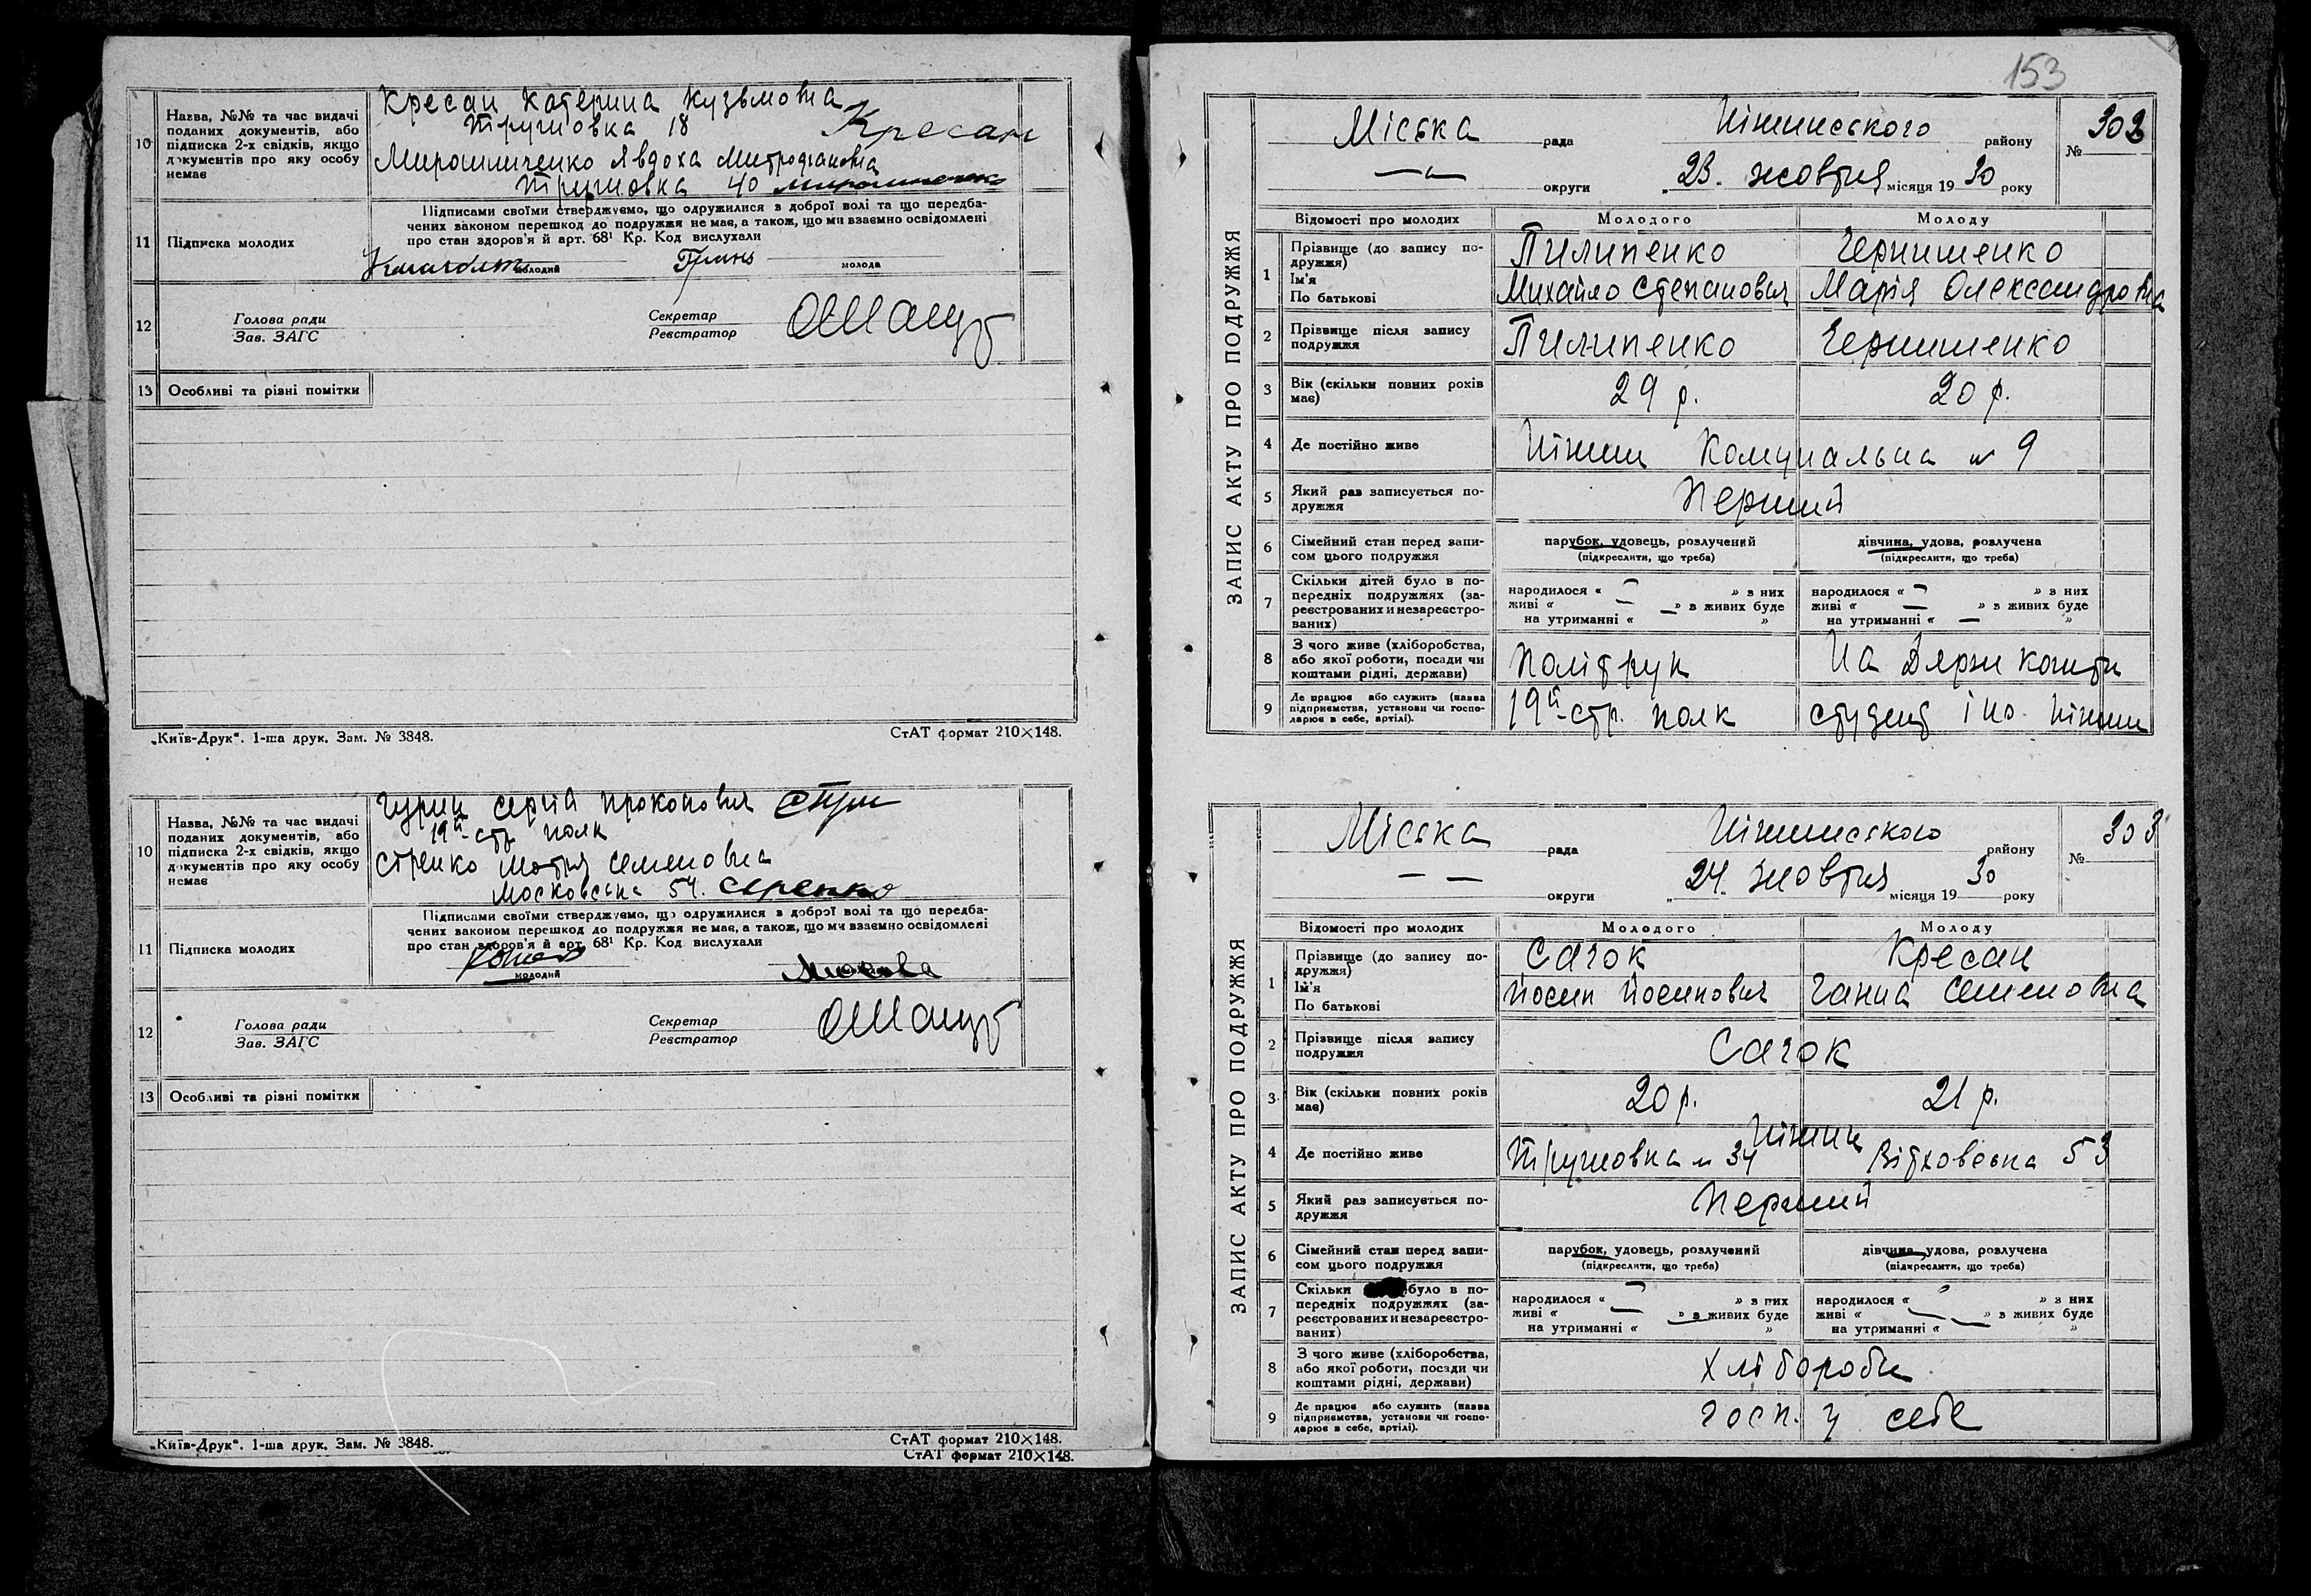 10
Назва, №№ та час видачі
поданих документів, або
підписка 2-х свідків, якщо
документів про яку особу
немає
Кресан Катерина Кузьмовна
18
Кресан
Мирошниченко Явдоха Митрофановна
40
11
Підписка молодих
Підписами своїми стверджуємо, що одружилися з доброї волі та що передба-
чених законом перешкод до подружжя не має, а також, що ми взаємно освідомлені
про стан здоров'я й арт. 68¹ Кр. Код вислухали
молодий
молода
12
Голова ради
Зав. ЗАГС
Секретар
Реєстратор
13 Особливі та різні помітки
„Київ-Друк“. 1-ша друк. Зам. № 3848.
СтАТ формат 210×148.
10
Назва, №№ та час видачі
поданих документів, або
підписка 2-х свідків, якщо
документів про яку особу
немає
Сергій Прокопович
19й стр. полк
Мотря Семеновна
Московська 54.
11
Підписка молодих
Підписами своїми стверджуємо, що одружилися з доброї волі та що передба-
чених законом перешкод до подружжя не має, а також, що ми взаємно освідомлені
про стан здоров'я й арт. 68¹ Кр. Код вислухали
молодий
12
Голова ради
Зав. ЗАГС
Секретар
Реєстратор
13 Особливі та різні помітки
„Київ-Друк“. 1-ша друк. Зам. № 3848.
СтАТ формат 210×148.
СтАТ формат 210×148.
153
ЗАПИС АКТУ ПРО ПОДРУЖЖЯ
Міська рада Ніжинського району
№ 302
округи „23. жовтня місяця 1930 року
Відомості про молодих Молодого Молоду
1 Прізвище (до запису по-
дружжя) Пилипенко Чернишенко
Ім'я
По батькові Михайло Степанович Марія Олександровна
2 Прізвище після запису
подружжя Пилипенко Чернишенко
3 Вік (скільки повних рохів
має) 29 р. 20 р.
4 Де постійно живе Ніжин Комунальна № 9
5 Який раз записується по-
дружжя Перший
6 Сімейний стан перед запи-
сом цього подружжя
парубок, удовець, розлучений дівчина, удова, розлучена
(підкреслити, що треба) (підкреслити, що треба)
7 Скільки дітей було в по-
передніх подружжях (за-
реєстрованих и незареєстро-
ваних)
народилося « — » з них народилося « — » з них
живі « — » з живих буде живі « — » з живих буде
на утриманні « — » на утриманні « — »
8 З чого живе (хліборобства,
або якої роботи, посади чи
коштами рідні, держави)
Політрук На Держ кошти
9 Де працює або служить (назва
підприємства, установи чи госпо-
дарює в себе, артілі).
19й стр. полк студент іно. Ніжин
ЗАПИС АКТУ ПРО ПОДРУЖЖЯ
Міська рада Ніжинського району
№ 303
— — округи „24. жовтня місяця 1930 року
Відомості про молодих Молодого Молоду
1 Прізвище (до запису по-
дружжя) Сачок Кресан
Ім'я
По батькові Йосип Йосипович Ганна Семеновна
2 Прізвище після запису
подружжя Сачок
3 Вік (скільки повних років
має) 20 р. 21 р.
Ніжин
4 Де постійно живе № 34 53
5 Який раз записується по-
дружжя Перший
6 Сімейний стан перед запи-
сом цього подружжя
парубок, удовець, розлучений дівчина, удова, розлучена
(підкреслити, що треба) (підкреслити, що треба)
7 Скільки було в по-
передніх подружжях (за-
реєстрованих и незареєстро-
ваних)
народилося « — » з них народилося « — » з них
живі « — » з живих буде живі « — » з живих буде
на утриманні « — » на утриманні « — »
8 З чого живе (хліборобства,
або якої роботи, посади чи
коштами рідні, держави)
Хлібороби
9 Де працює або служить (назва
підприємства, установи чи госпо-
дарює в себе, артілі).
госп. у себе